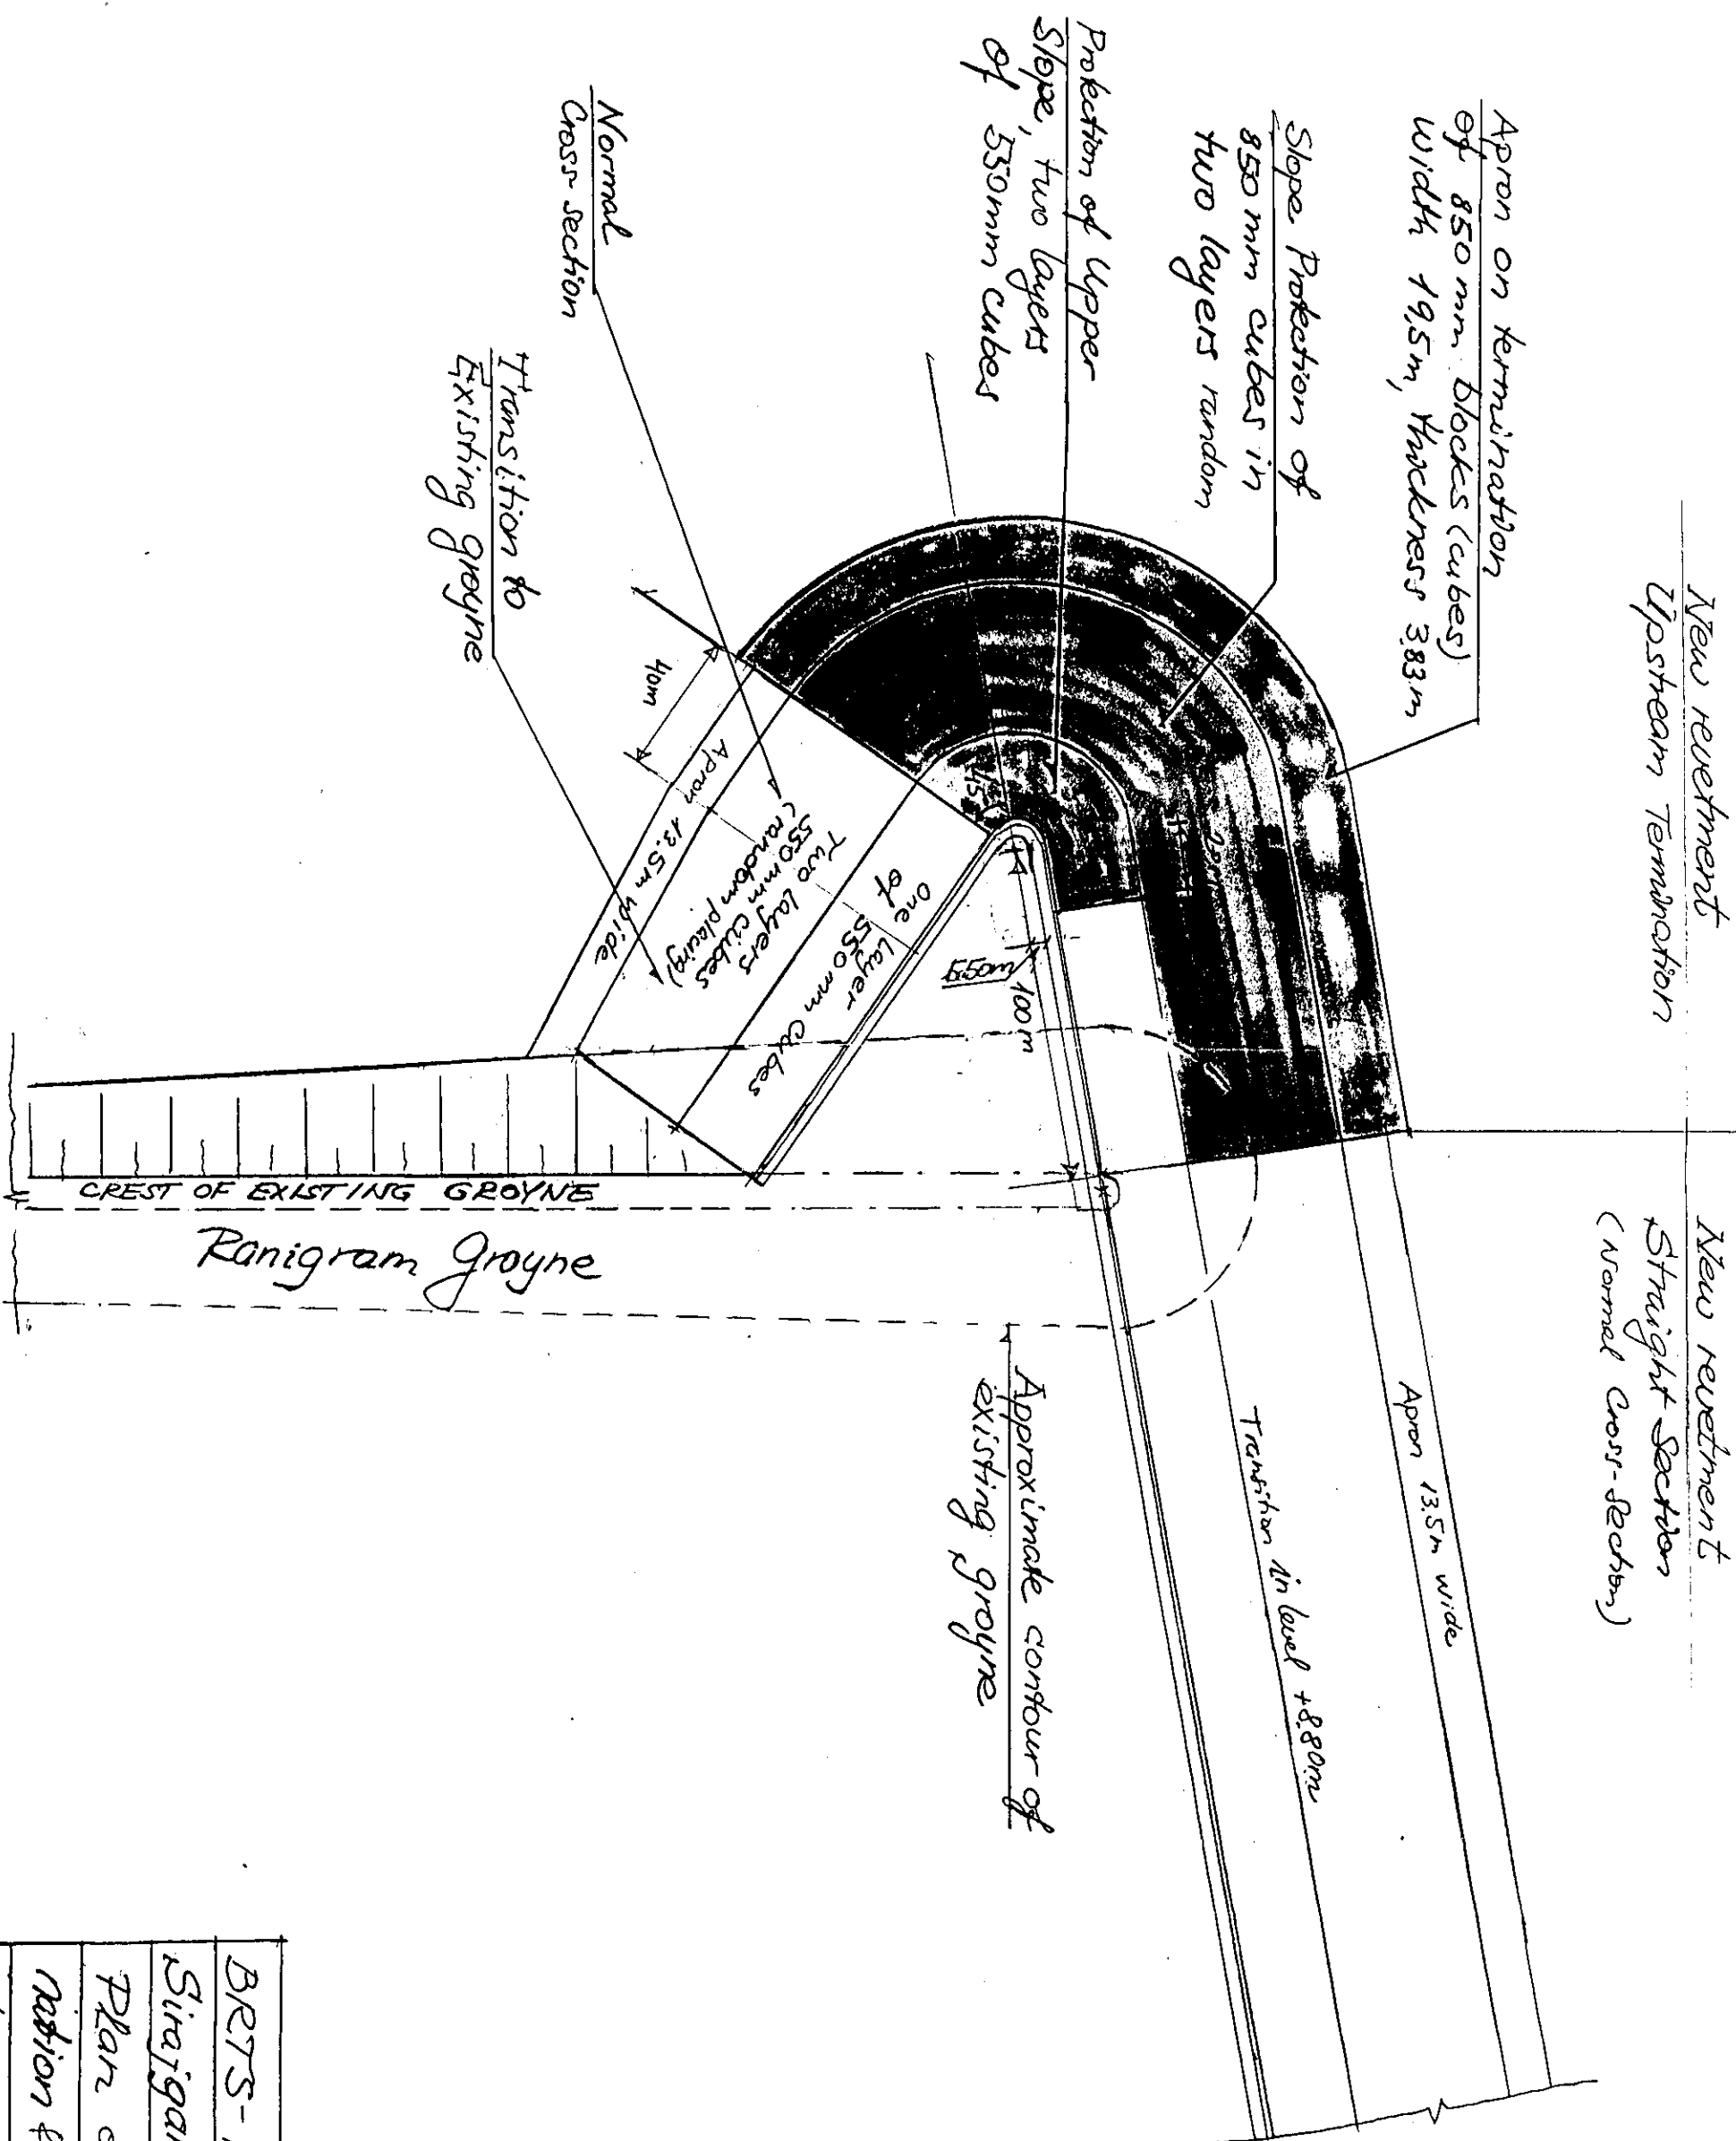 New revetment
Upstream Termination
New revetment
Straight Section
(Normal Cross-Section)
Apron on termination
of 850 mm blocks (cubes)
width 19,5m, thickness 3.83m
Slope Protection of
850 mm cubes in
two layers random
Protection of Upper
Slope, two layers
of 550mm cubes
Normal
Cross-section
Transition to
Existing groyne
40m
Apron 13.5m wide
Two layers
550 mm cubes
(random placing)
One Layer
of 550 mm cubes
45
5.50m
100m
Apron 13.5m wide
Transition in level +8.80m
Approximate contour of
existing groyne
CREST OF EXISTING GROYNE
Ranigram Groyne
BRTS-
Sirajgan
Plan
nation